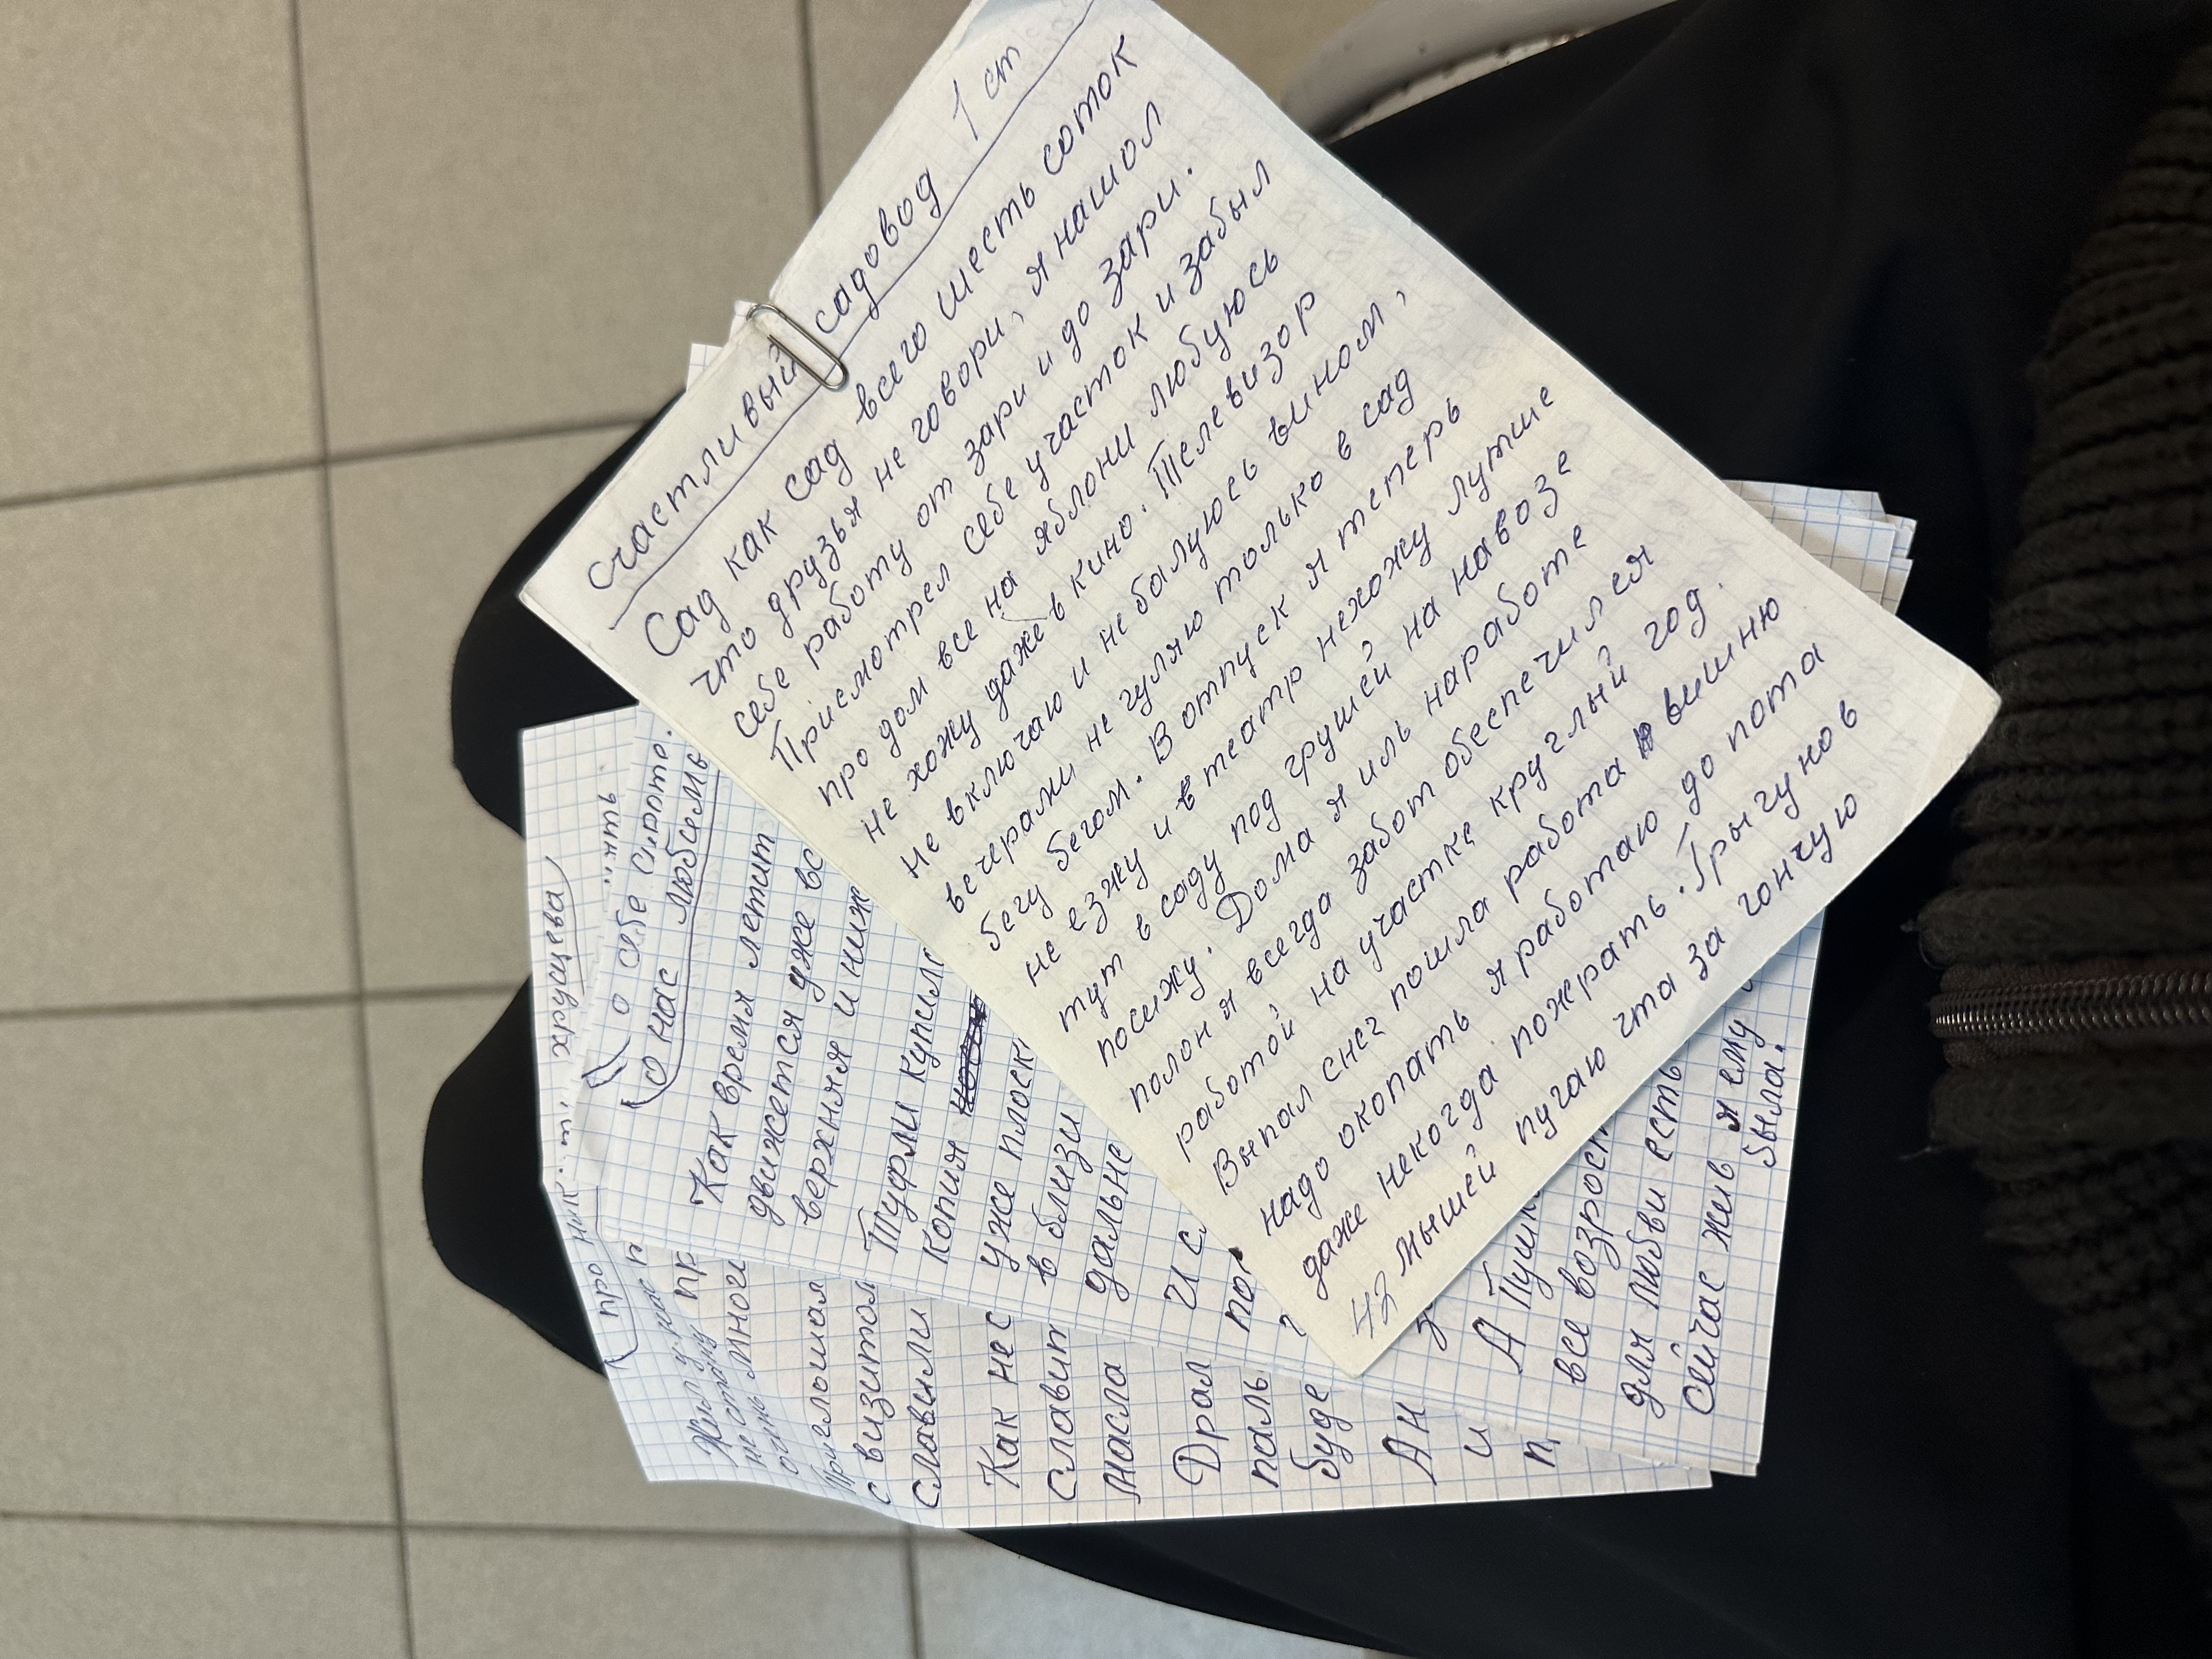 счастливый садовод 1 ст
Сад как сад всего шесть соток
что друзья не говори, я нашол
себе работу от зари и до зари.
Присмотрел себе участок и забыл
про дом все на яблони любуюсь
не хожу даже в кино. Телевизор
не включаю и не балуюсь вином,
вечерами не гуляю только в сад
бегу бегом. В отпуск я теперь
не езжу и в театр нехожу лутше
тут в саду под грушей на навозе
посижу. Дома я иль наработе
полон я всегда забот обеспечился
работой на участке круглый год.
Выпал снег пошла работа вишню
надо окопать я работаю до пота
даже некогда пожрать. Грызунов
42 мышей пугаю что за гончую
о себе
О нас любим
Как время летит
движется уже вс
верхняя и ниж
Туфли купил
Копия
уже плоск
в близи
дальне
И с
А Пушк
все возрос
для любви есть
Сейчас жив я ему
была.
про Ник. т. хрущева
Жил у нас
не стану пр
очень много
Приглошал
с визитом
славили
Как не с
славит
масла
Драл
паль
буде
Ан
и